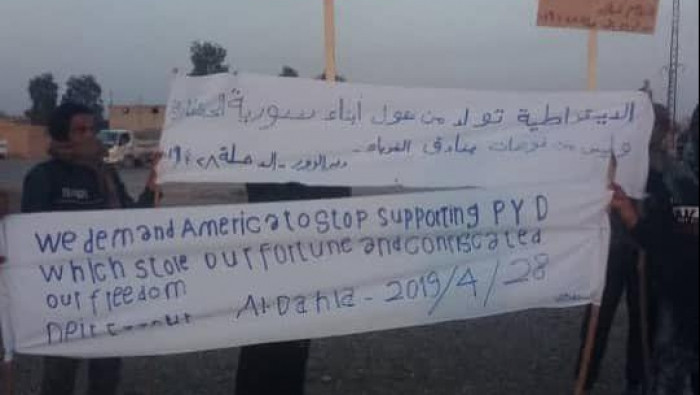 الديمقراطية تولد من عقول أبناء سورية
وليس من فوهات بنادق الغرباء
ديرالزور - الدحلة ٢٨ ٤ ٢٠١٩
We demand America to stop supporting PYD
which stole our fortune and confiscated
our freedom
Al Dahla - 2019/4/28